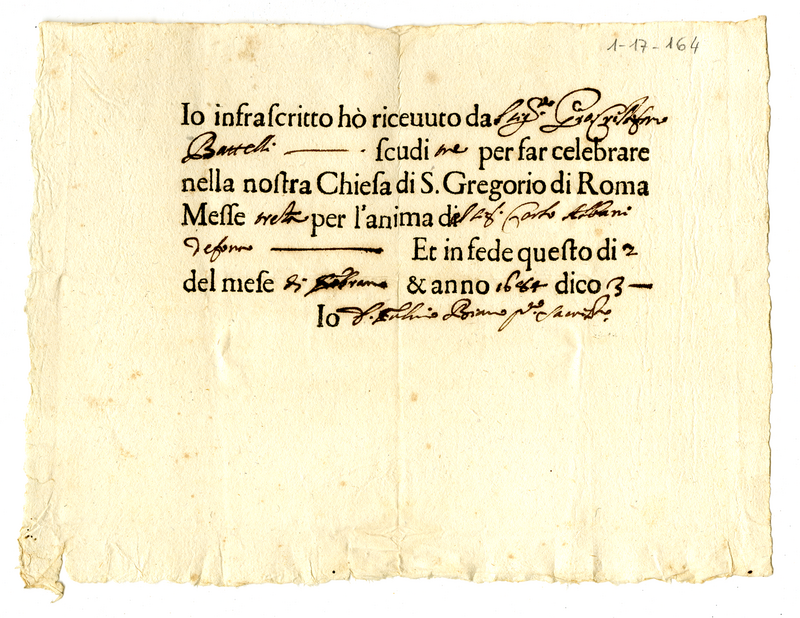 1-17-164
Io infraſcritto hò riceuuto da
Battelli ſcudi tre per far celebrare
nella noſtra Chieſa di S. Gregorio di Roma
Meſſe trenta per l'anima del Sig. Carlo Albani
Et in fede queſto di 2
del meſe di Febraro & anno 1684 dico 3
Io